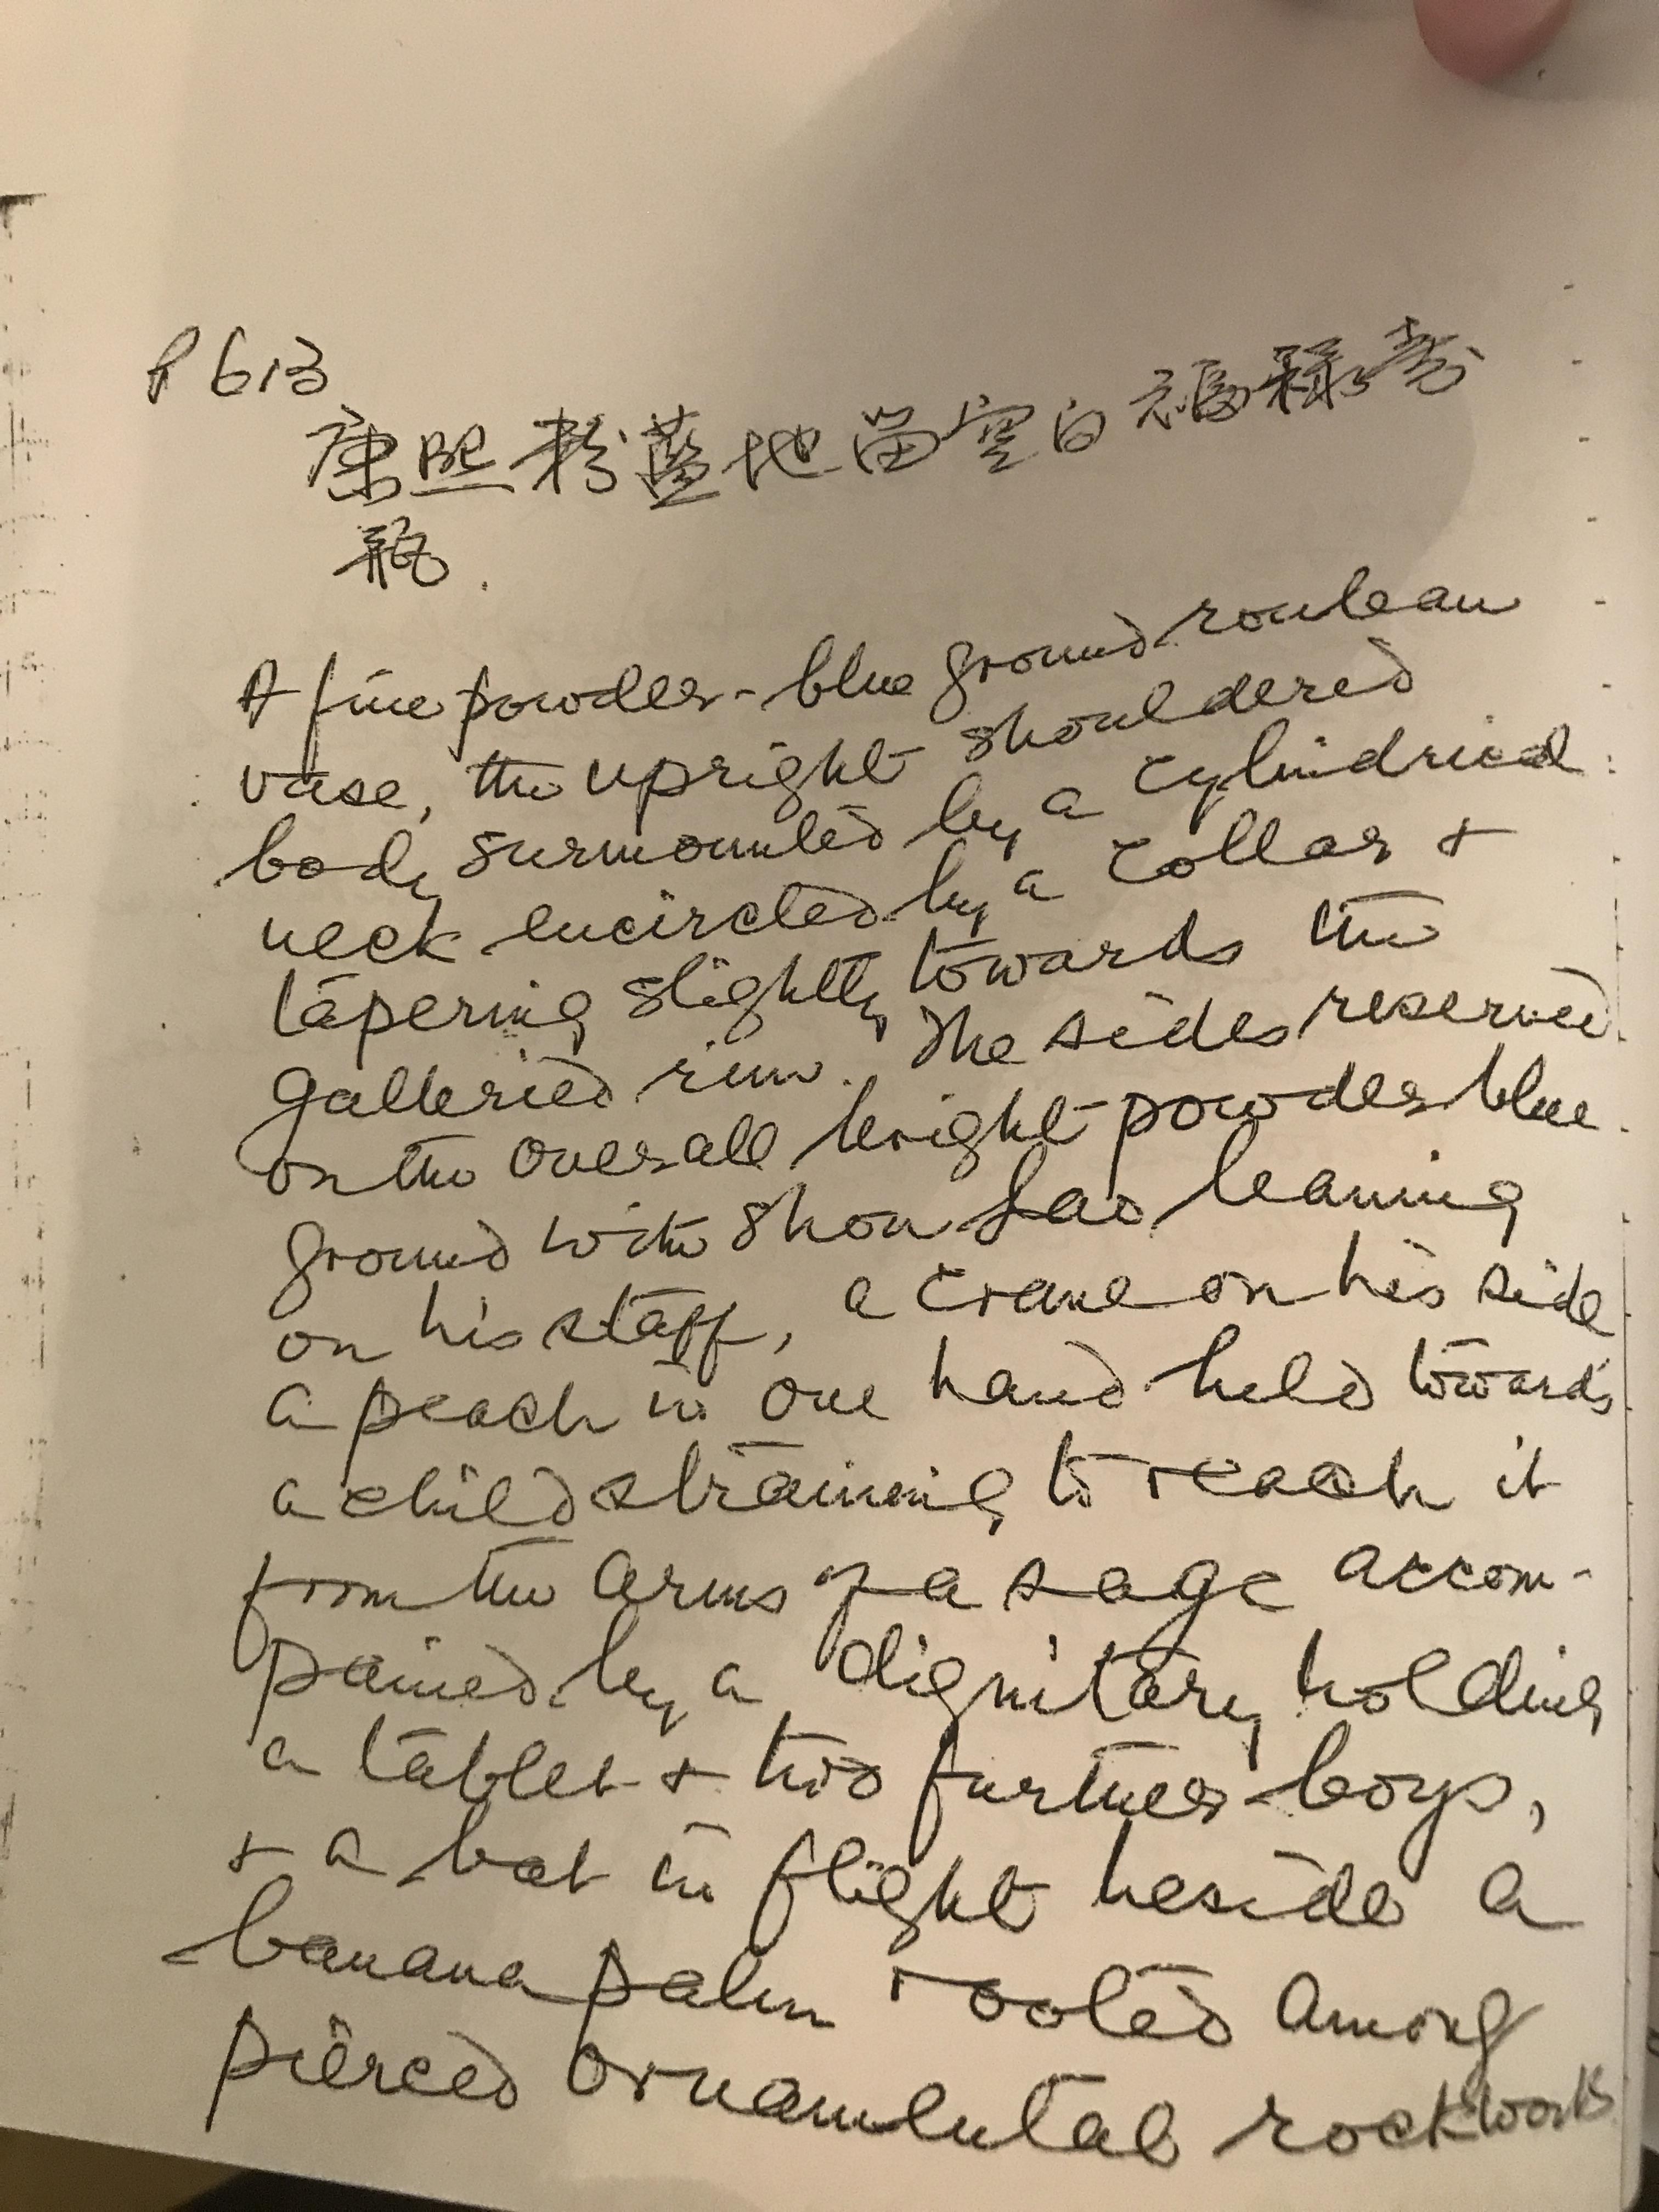 P 613
康熙粉藍地留空白福祿壽
瓶.
A fine powder-blue ground rouleau
vase, the upright shouldered
body surmounted by a cylindrical
neck encircled by a collar +
tapering slightly towards the
galleried rim. The sides reserved
on the overall bright powder blue
ground with Shou Lao leaning
on his staff, a crane on his side
a peach in one hand held towards
a child straining to reach it
from the arms of a sage accom-
pained by a dignitary holding
a tablet + two further boys,
+ a bat in flight beside a
banana palm rooted among
pierced ornamental rockwork